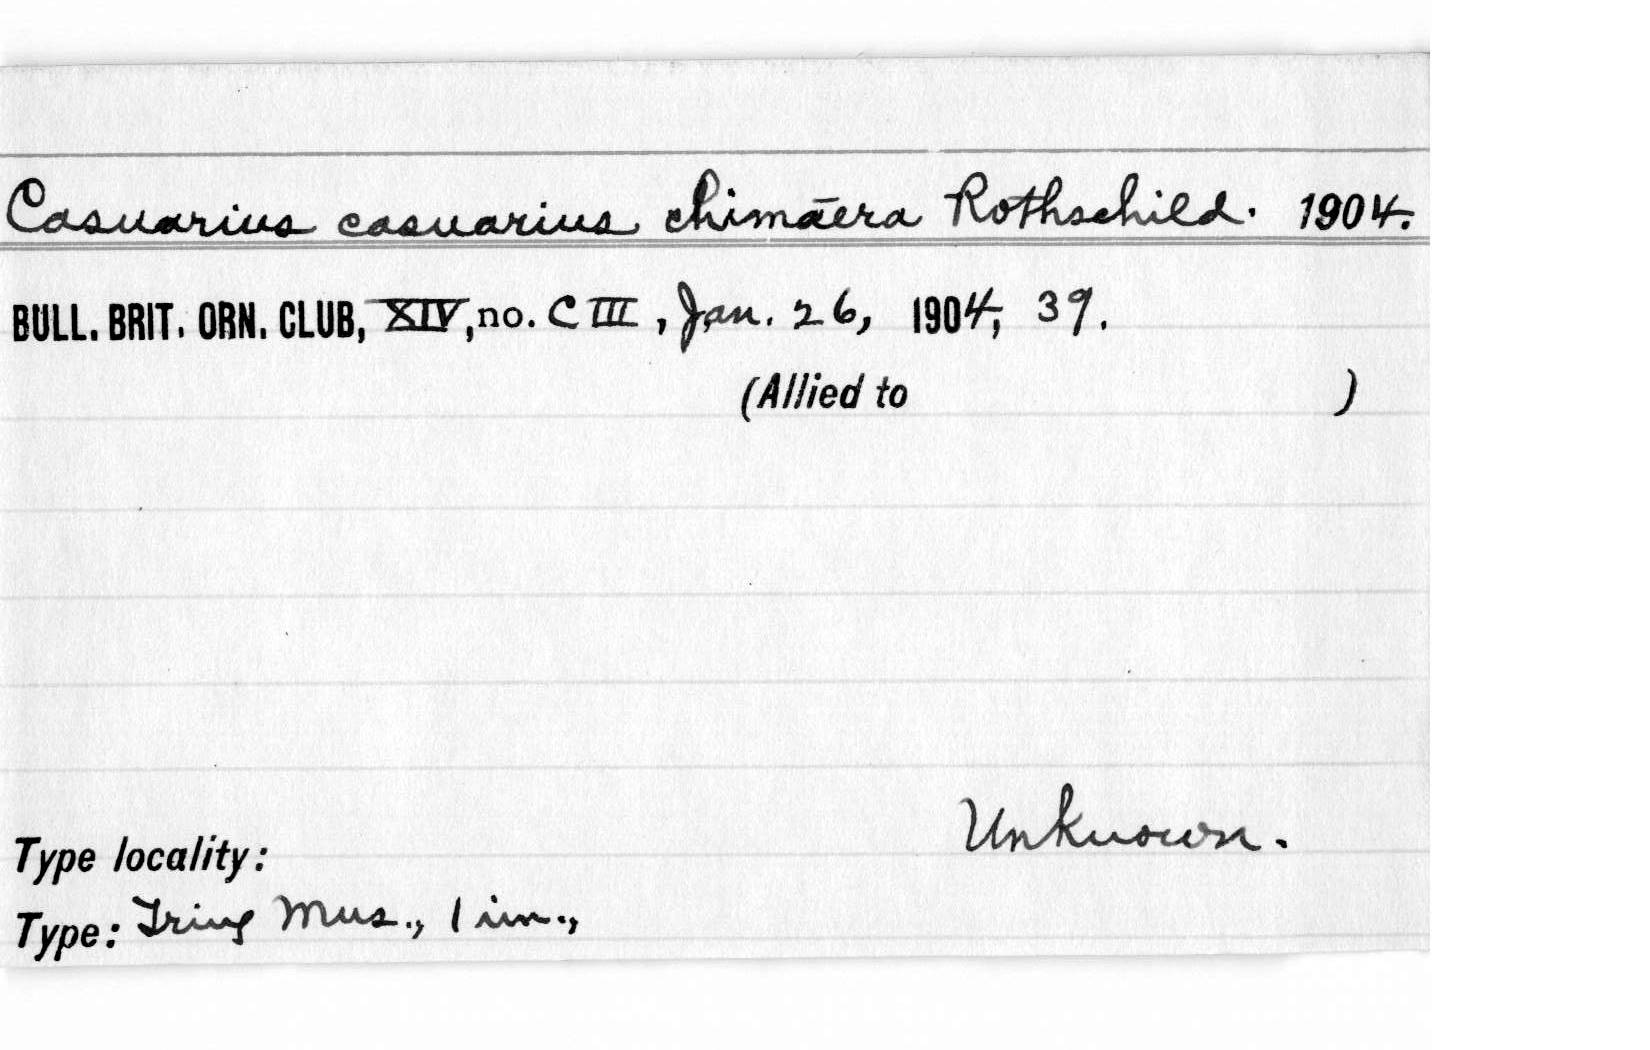 Casuarius casuarius chimāera Rothschild. 1904.
BULL. BRIT. ORN. CLUB, XIV, no. CIII, Jan. 26, 1904, 39.
(Allied to )
Unknown.
Type locality:
Type: Tring Mus., 1 im.,